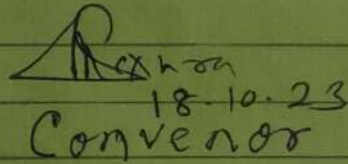 18.10.23
Convenor